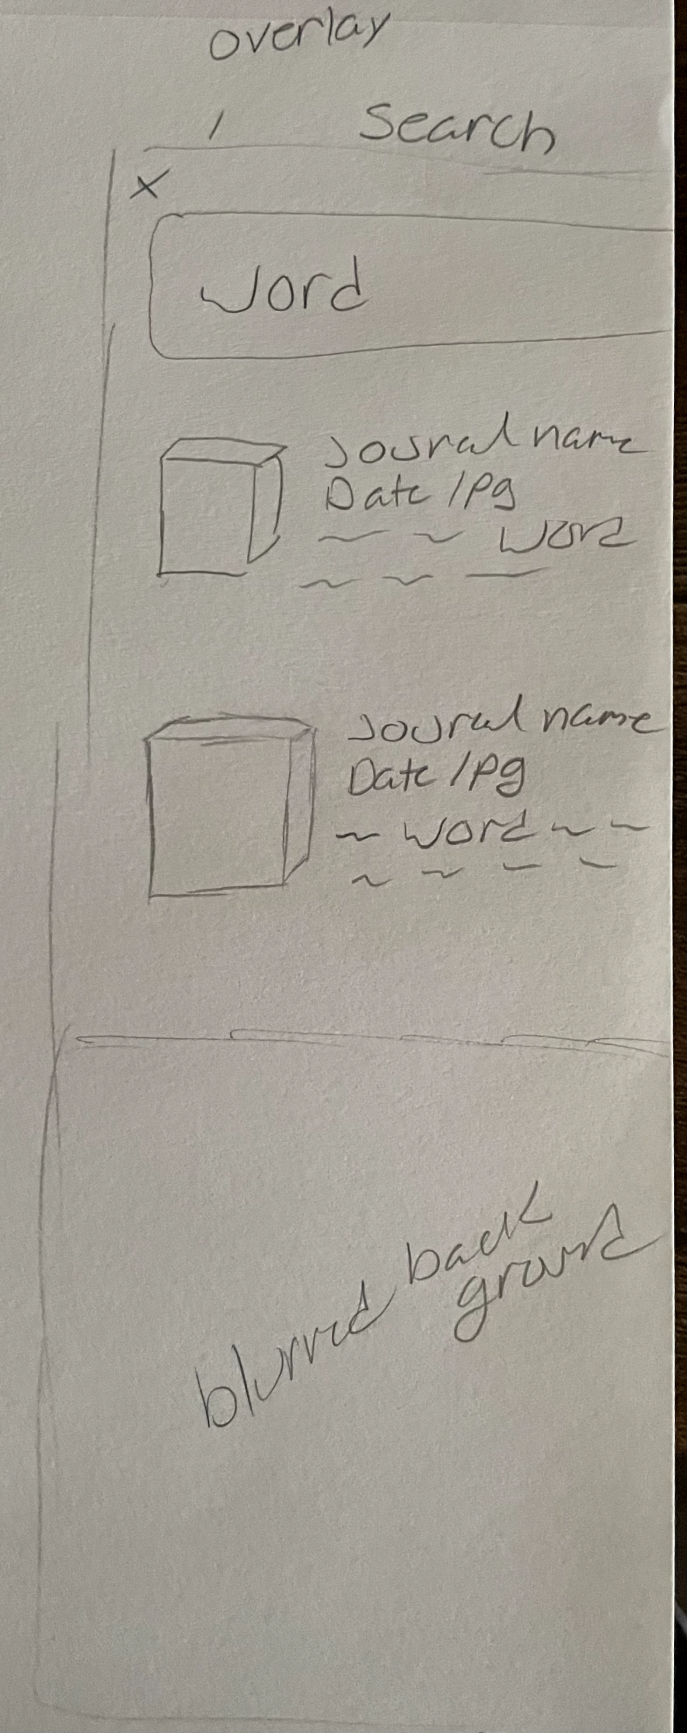 overlay
Search
X
Word
Journal name
Date/pg
Word
Journal name
Date/pg
Word
blurred back
ground